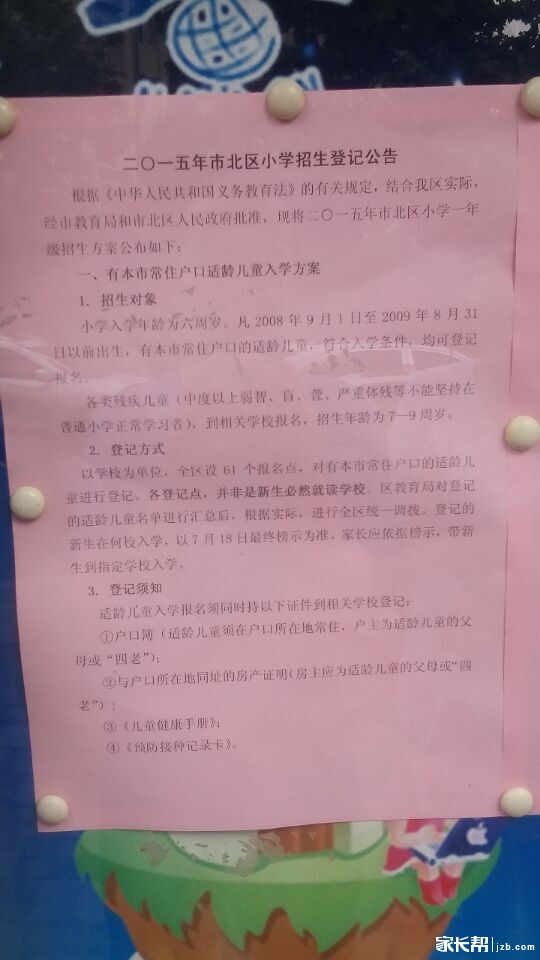 二〇一五年市北区小学招生登记公告
根据《中华人民共和国义务教育法》的有关规定，结合我区实际，
经市教育局和市北区人民政府批准，现将二〇一五年市北区小学一年
级招生方案公布如下：
一、有本市常住户口适龄儿童入学方案
1. 招生对象
小学入学年龄为六周岁。凡 2008 年 9 月 1 日至 2009 年 8 月 31
日以前出生，有本市常住户口的适龄儿童，符合入学条件，均可登记
报名。
各类残疾儿童（中度以上弱智、盲、聋、严重体残等不能坚持在
普通小学正常学习者），到相关学校报名，招生年龄为 7—9 周岁。
2. 登记方式
以学校为单位，全区设 61 个报名点，对有本市常住户口的适龄儿
童进行登记。各登记点，并非是新生必然就读学校。区教育局对登记
的适龄儿童名单进行汇总后，根据实际，进行全区统一调拨。登记的
新生在何校入学，以 7 月 18 日最终榜示为准。家长应依据榜示，带新
生到指定学校入学。
3. 登记须知
适龄儿童入学报名须同时持以下证件到相关学校登记：
①户口簿（适龄儿童须在户口所在地常住，户主为适龄儿童的父
母或“四老”）；
②与户口所在地同址的房产证明（房主应为适龄儿童的父母或“四
老”）；
③《儿童健康手册》；
④《预防接种记录卡》。
家长帮 jzb.com